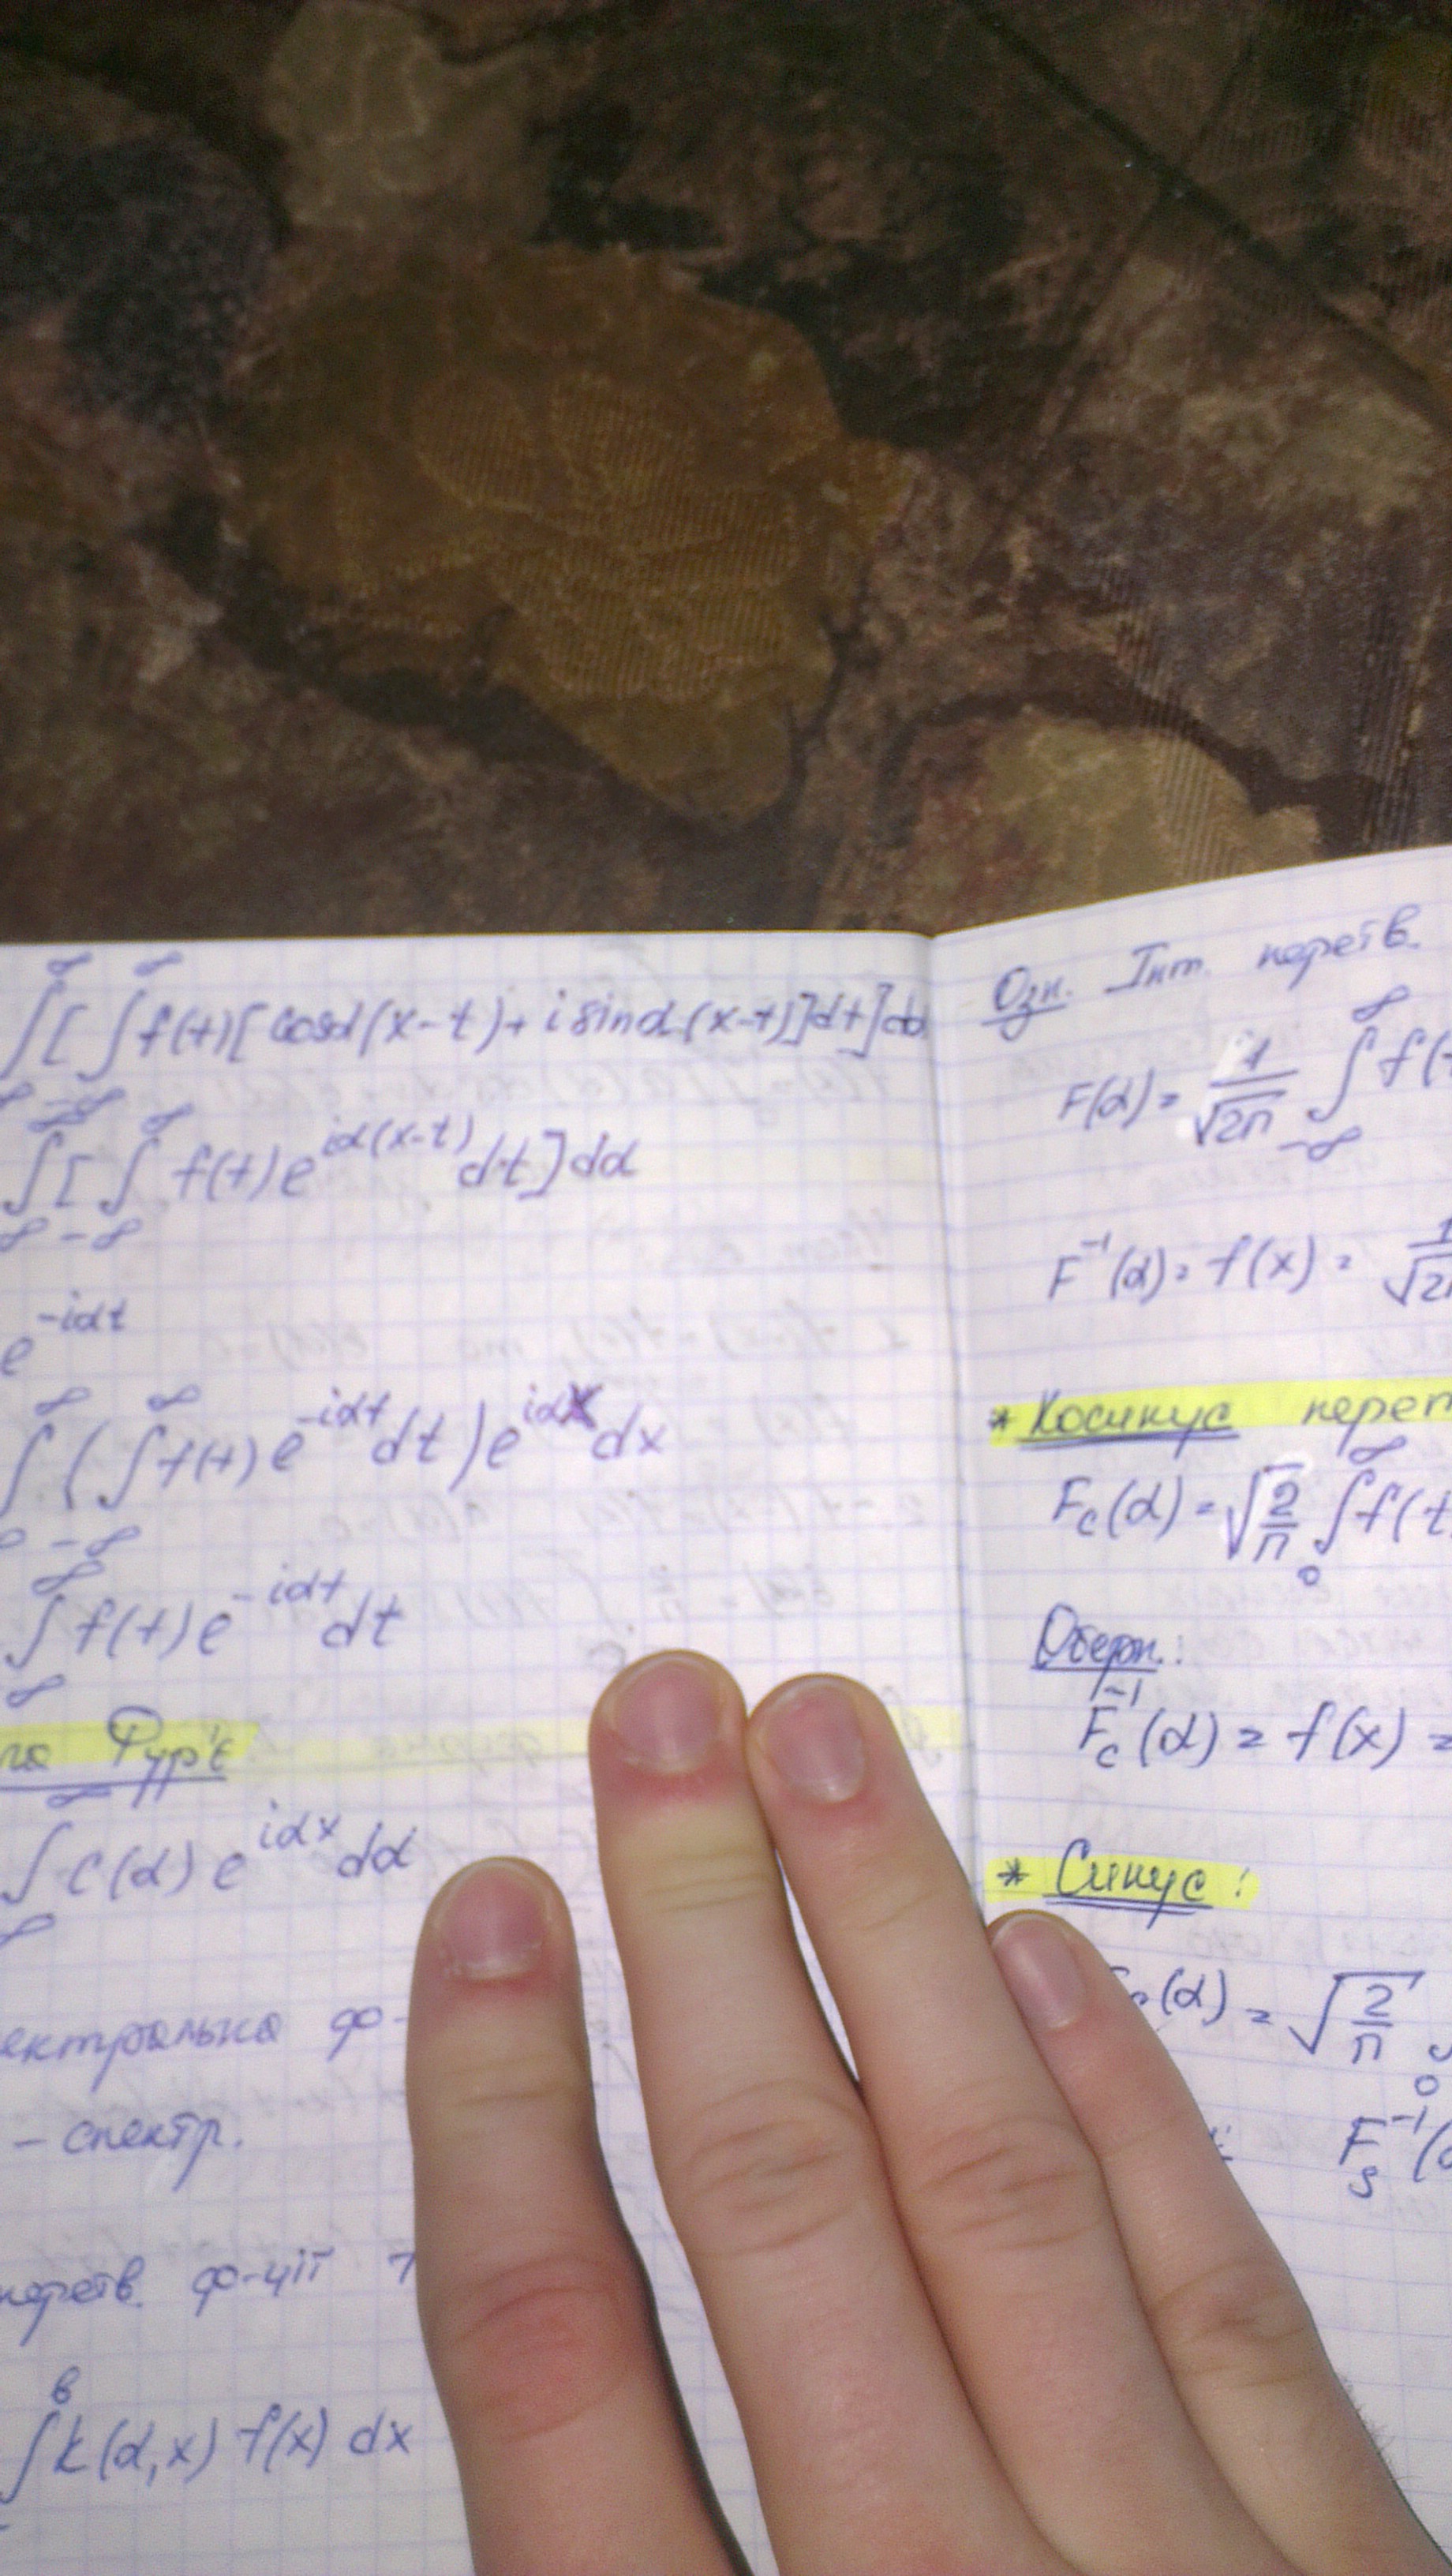 ∫[∫f(t)[cosα(x-t)+ i sinα(x-t)]dt]dα
∫[∫ f(t) e^{iα(x-t)} dt] dα
e^{-iαt}
∫(∫f(t) e^{-iαt} dt) e^{iαx} dx
∫ f(t) e^{-iαt} dt
Фур'є
∫ C(α) e^{iαx} dα
ектральна ф-
- спектр.
перетв. ф-ції
∫ k(α,x) f(x) dx
Озн. Інт. перетв.
F(α) = 1/√2π ∫_{-∞}^{∞} f(t
F^{-1}(α) = f(x) = 1/√2π
* Косинус перет
F_c(α) = √2/π ∫_0^∞ f(t
Оберн.:
F_c^{-1}(α) = f(x) =
* Синус:
(α) = √2/π
F_s^{-1}(α